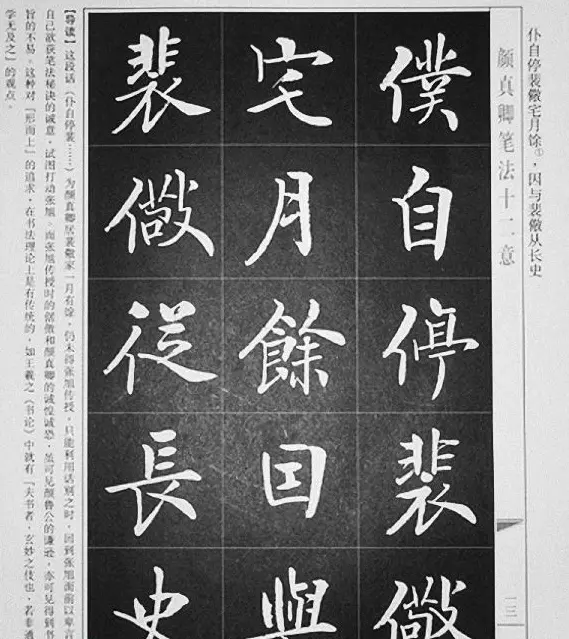 仆自停裴儆宅月馀①，因与裴儆从长史
颜真卿笔法十二意
僕自停裴儆
宅月餘因與
裴儆從長史
【导读】这段话（仆自停裴……）为颜真卿居裴儆家一月有馀，仍未得张旭传授，只能利用话别之时，因到张旭面前以卑言
自己欲获笔法秘诀的诚意，试图打动张旭。而张旭传授时的倨傲和颜真卿的诚惶诚恐，虽可见颜鲁公的谦逊，亦可见得到书
旨的不易。这种对『形而上』的追求，在书法理论上是有传统的，如王羲之《书论》中就有『夫书者，玄妙之伎也，若非通
学无及之』的观点。